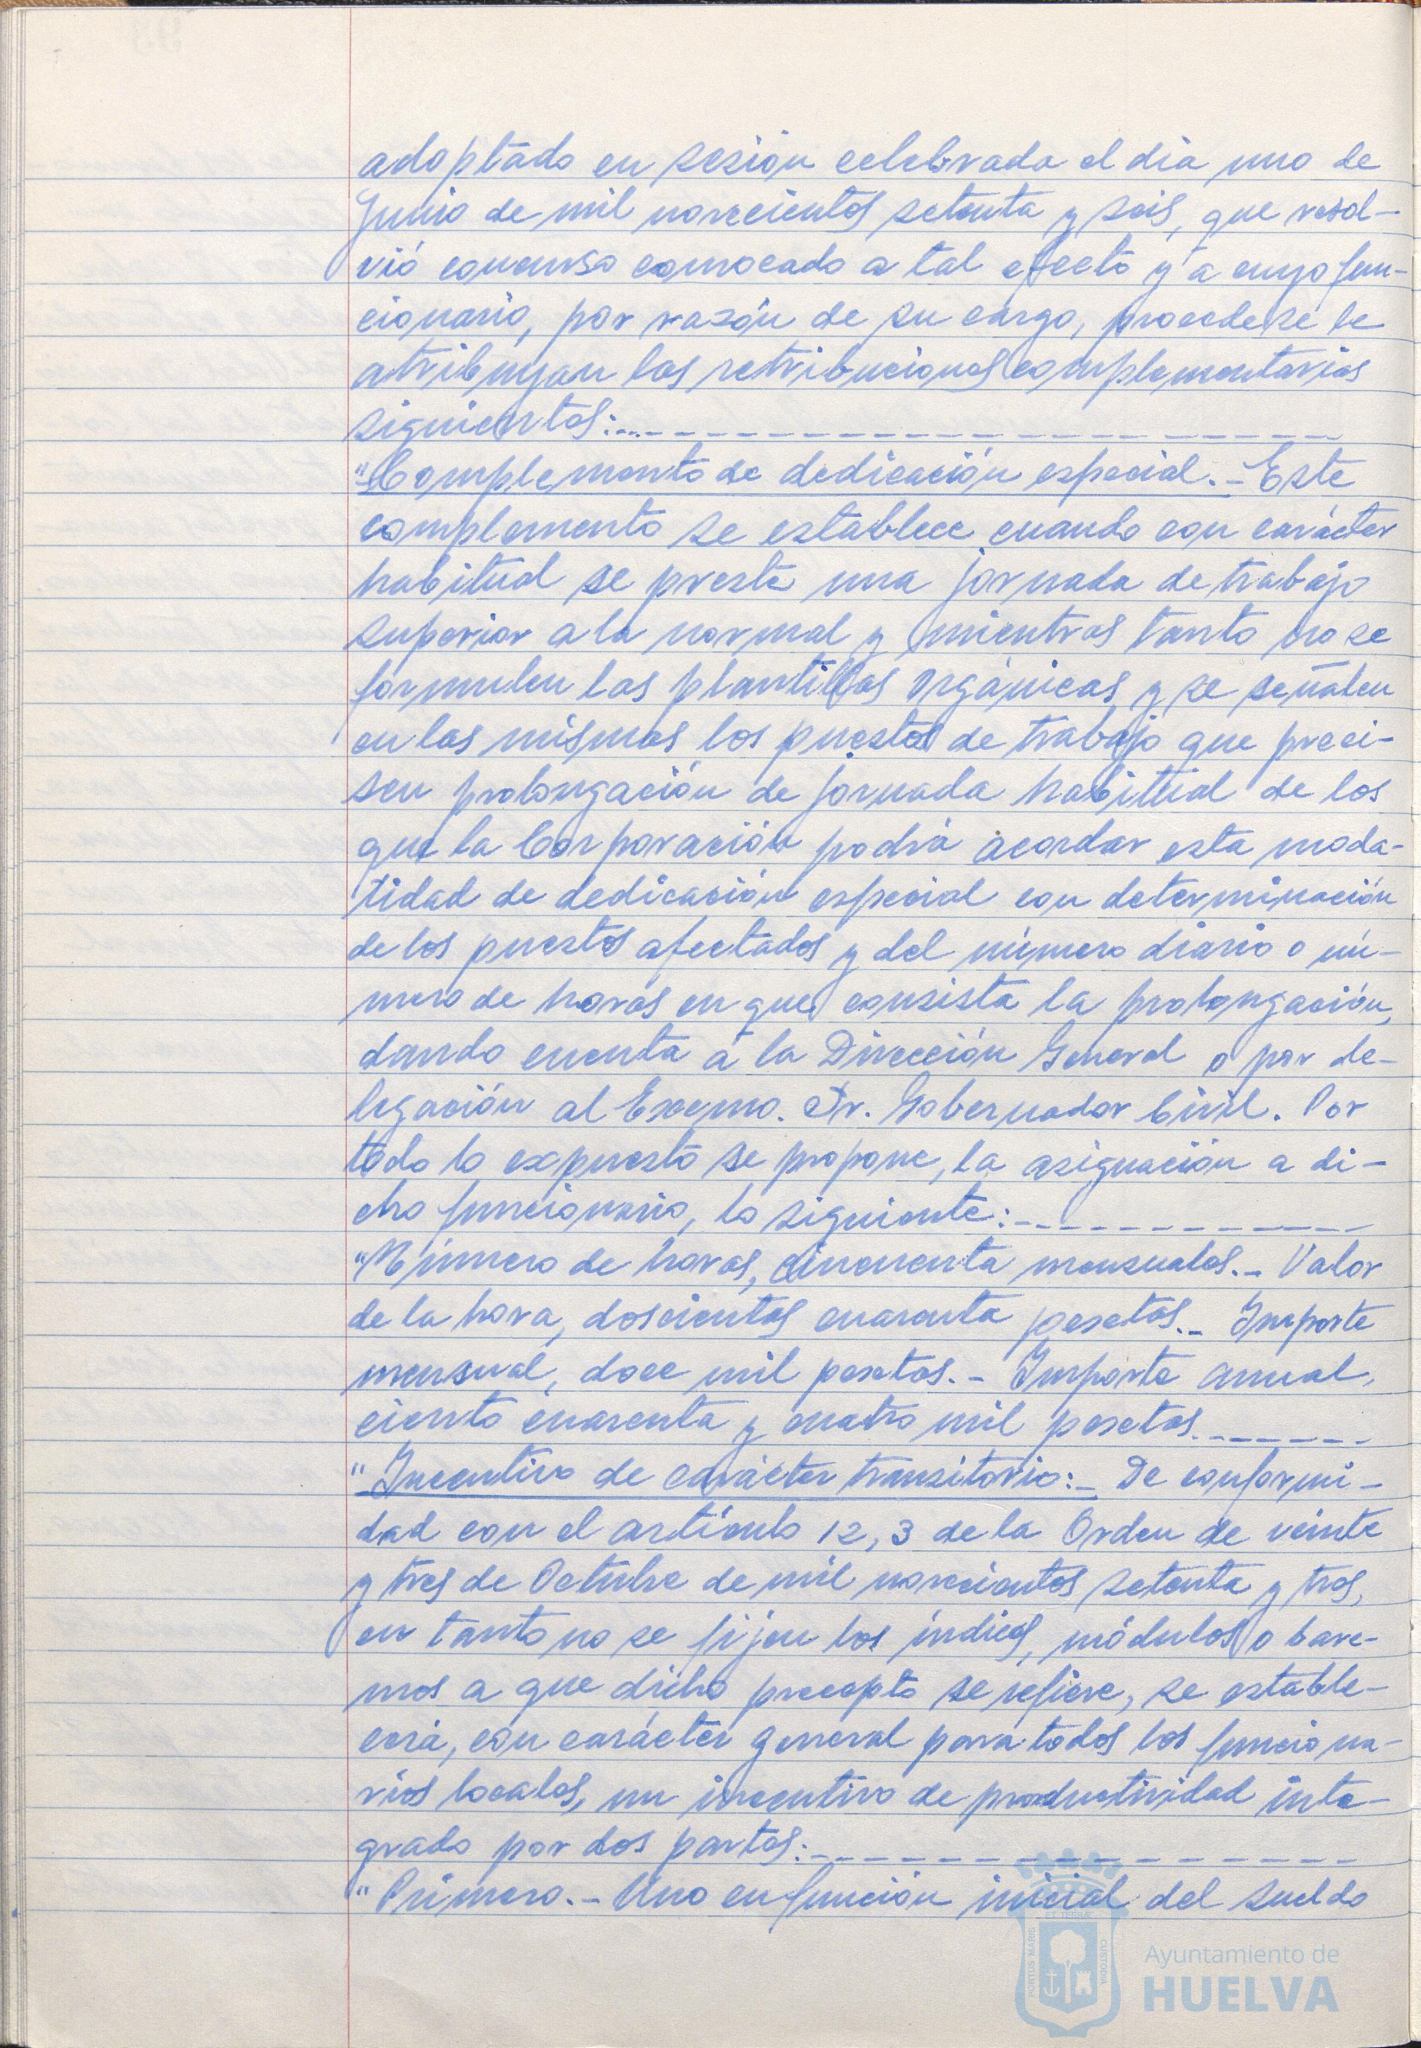 adoptado en sesión celebrada el día uno de
Junio de mil novecientos setenta y seis, que resol-
vió concurso convocado a tal efecto y a cuyo fun-
cionario, por razón de su cargo, procede se le
atribuyan las retribuciones complementarias
siguientes:
"Complemento de dedicación especial.- Este
complemento se establece cuando con carácter
habitual se preste una jornada de trabajo
superior a la normal y mientras tanto no se
formulen las plantillas orgánicas y se señalen
en las mismas los puestos de trabajo que preci-
sen prolongación de jornada habitual de los
que la Corporación podrá acordar esta moda-
lidad de dedicación especial con determinación
de los puestos afectados y del número diario o nú-
mero de horas en que consista la prolongación,
dando cuenta a la Dirección General o por de-
legación al Excmo. Sr. Gobernador Civil. Por
todo lo expuesto se propone, la asignación a di-
cho funcionario, lo siguiente:
"Número de horas, cincuenta mensuales.- Valor
de la hora, doscientas cuarenta pesetas.- Importe
mensual, doce mil pesetas.- Importe anual,
ciento cuarenta y cuatro mil pesetas.
"Incentivo de carácter transitorio:- De conformi-
dad con el artículo 12,3 de la Orden de veinte
y tres de Octubre de mil novecientos setenta y tres,
en tanto no se fijen los índices, módulos o bare-
mos a que dicho precepto se refiere, se estable-
cerá, con carácter general para todos los funciona-
rios locales, un incentivo de productividad inte-
grado por dos partes:
"Primero.- Uno en función inicial del sueldo
PORTUS MARIS
ET TERRAE
CUSTODIA
Ayuntamiento de
HUELVA